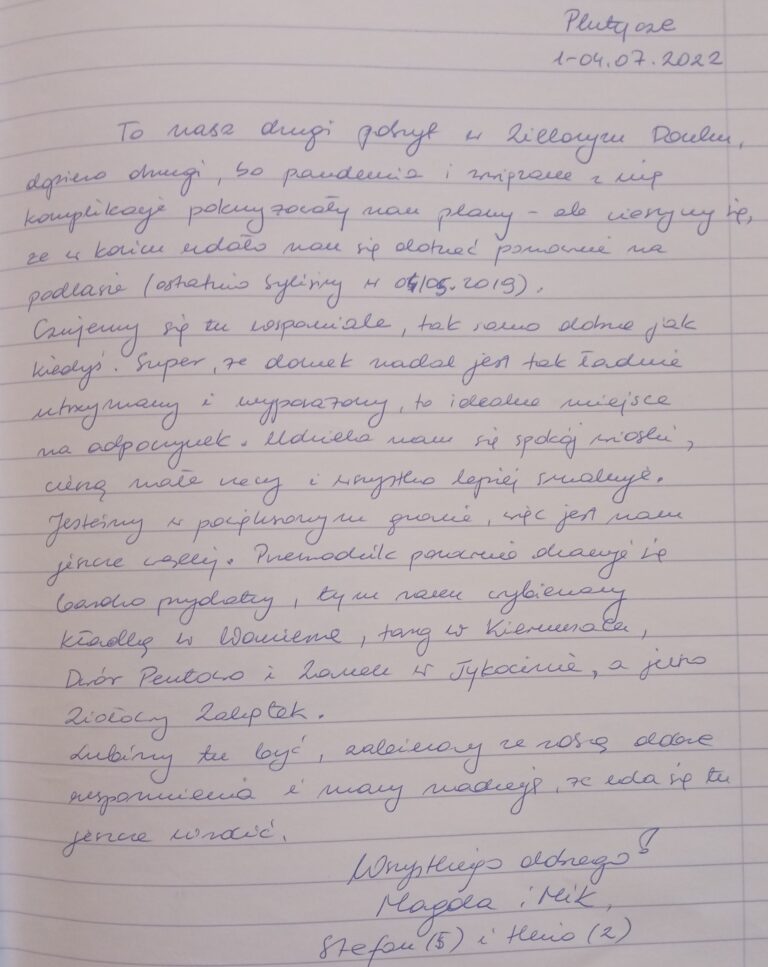 Plutycze
1-04.07.2022
To nasz drugi pobyt w Zielonym Domku,
dopiero drugi, bo pandemia i związane z nią
komplikacje pokrzyżowały nam plany - ale cieszymy się,
że w końcu udało nam się dotrzeć ponownie na
podlasie (ostatnio byliśmy w 04/05.2019).
Czujemy się tu wspaniale, tak samo dobrze jak
kiedyś. Super, że domek nadal jest tak ładnie
utrzymany i wyposażony, to idealne miejsce
na odpoczynek. Udziela nam się spokój wioski,
cieszą małe rzeczy i wszystko lepiej smakuje.
Jesteśmy w powiększonym gronie, więc jest nam
jeszcze weselej. Przewodnik ponownie okazuje się
bardzo przydatny, tym razem wybieramy
kładkę w Waniewie, targ w Kiermusach,
Dwór Pentowo i Zamek w Tykocinie, a jutro
Ziołowy Zakątek.
Lubimy tu być, zabieramy ze sobą dobre
wspomnienia i mamy nadzieję, że uda się tu
jeszcze wrócić.
Wszystkiego dobrego!
Magda i Mik,
Stefan (5) i Henio (2)